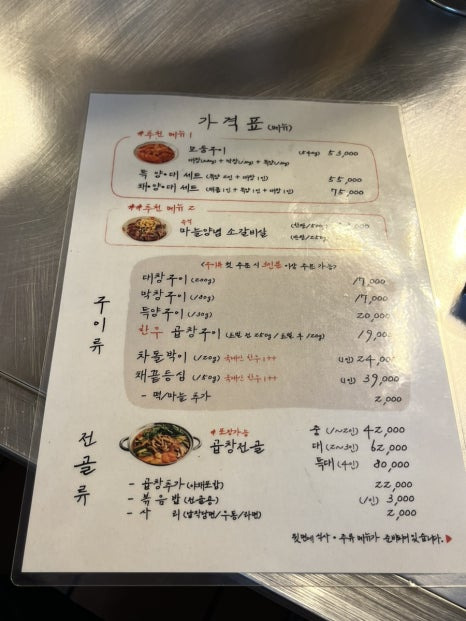 가격표 (메뉴)
#추천 메뉴 1
모둠구이 (540g) 53,000
특양·대 세트 (특양 2인 + 대창 1인) 55,000
채·양·대 세트 (채끝 1인 + 특양 1인 + 대창 1인) 75,000
##추천 메뉴 2
숙성
마늘양념 소갈비살
<구이류 첫 주문 시 3인분 이상 주문 가능>
구이류
대창구이 (200g) 17,000
막창구이 (180g) 17,000
특양구이 (130g) 20,000
한우 곱창구이 (초벌 전 250g / 초벌 후 120g) 19,000
차돌박이 (120g) 국내산 한우 1++ (1인) 24,000
채끝등심 (150g) 국내산 한우 1++ (1인) 39,000
- 떡/마늘 추가 2,000
전골류
*포장가능
곱창전골
중 (1~2인) 42,000
대 (2~3인) 62,000
특대 (4인) 80,000
- 곱창추가 (야채포함) 22,000
- 볶음밥 (전골용) (1인) 3,000
- 사리 (납작당면/우동/라면) 2,000
뒷면에 식사·주류 메뉴가 준비되어 있습니다.